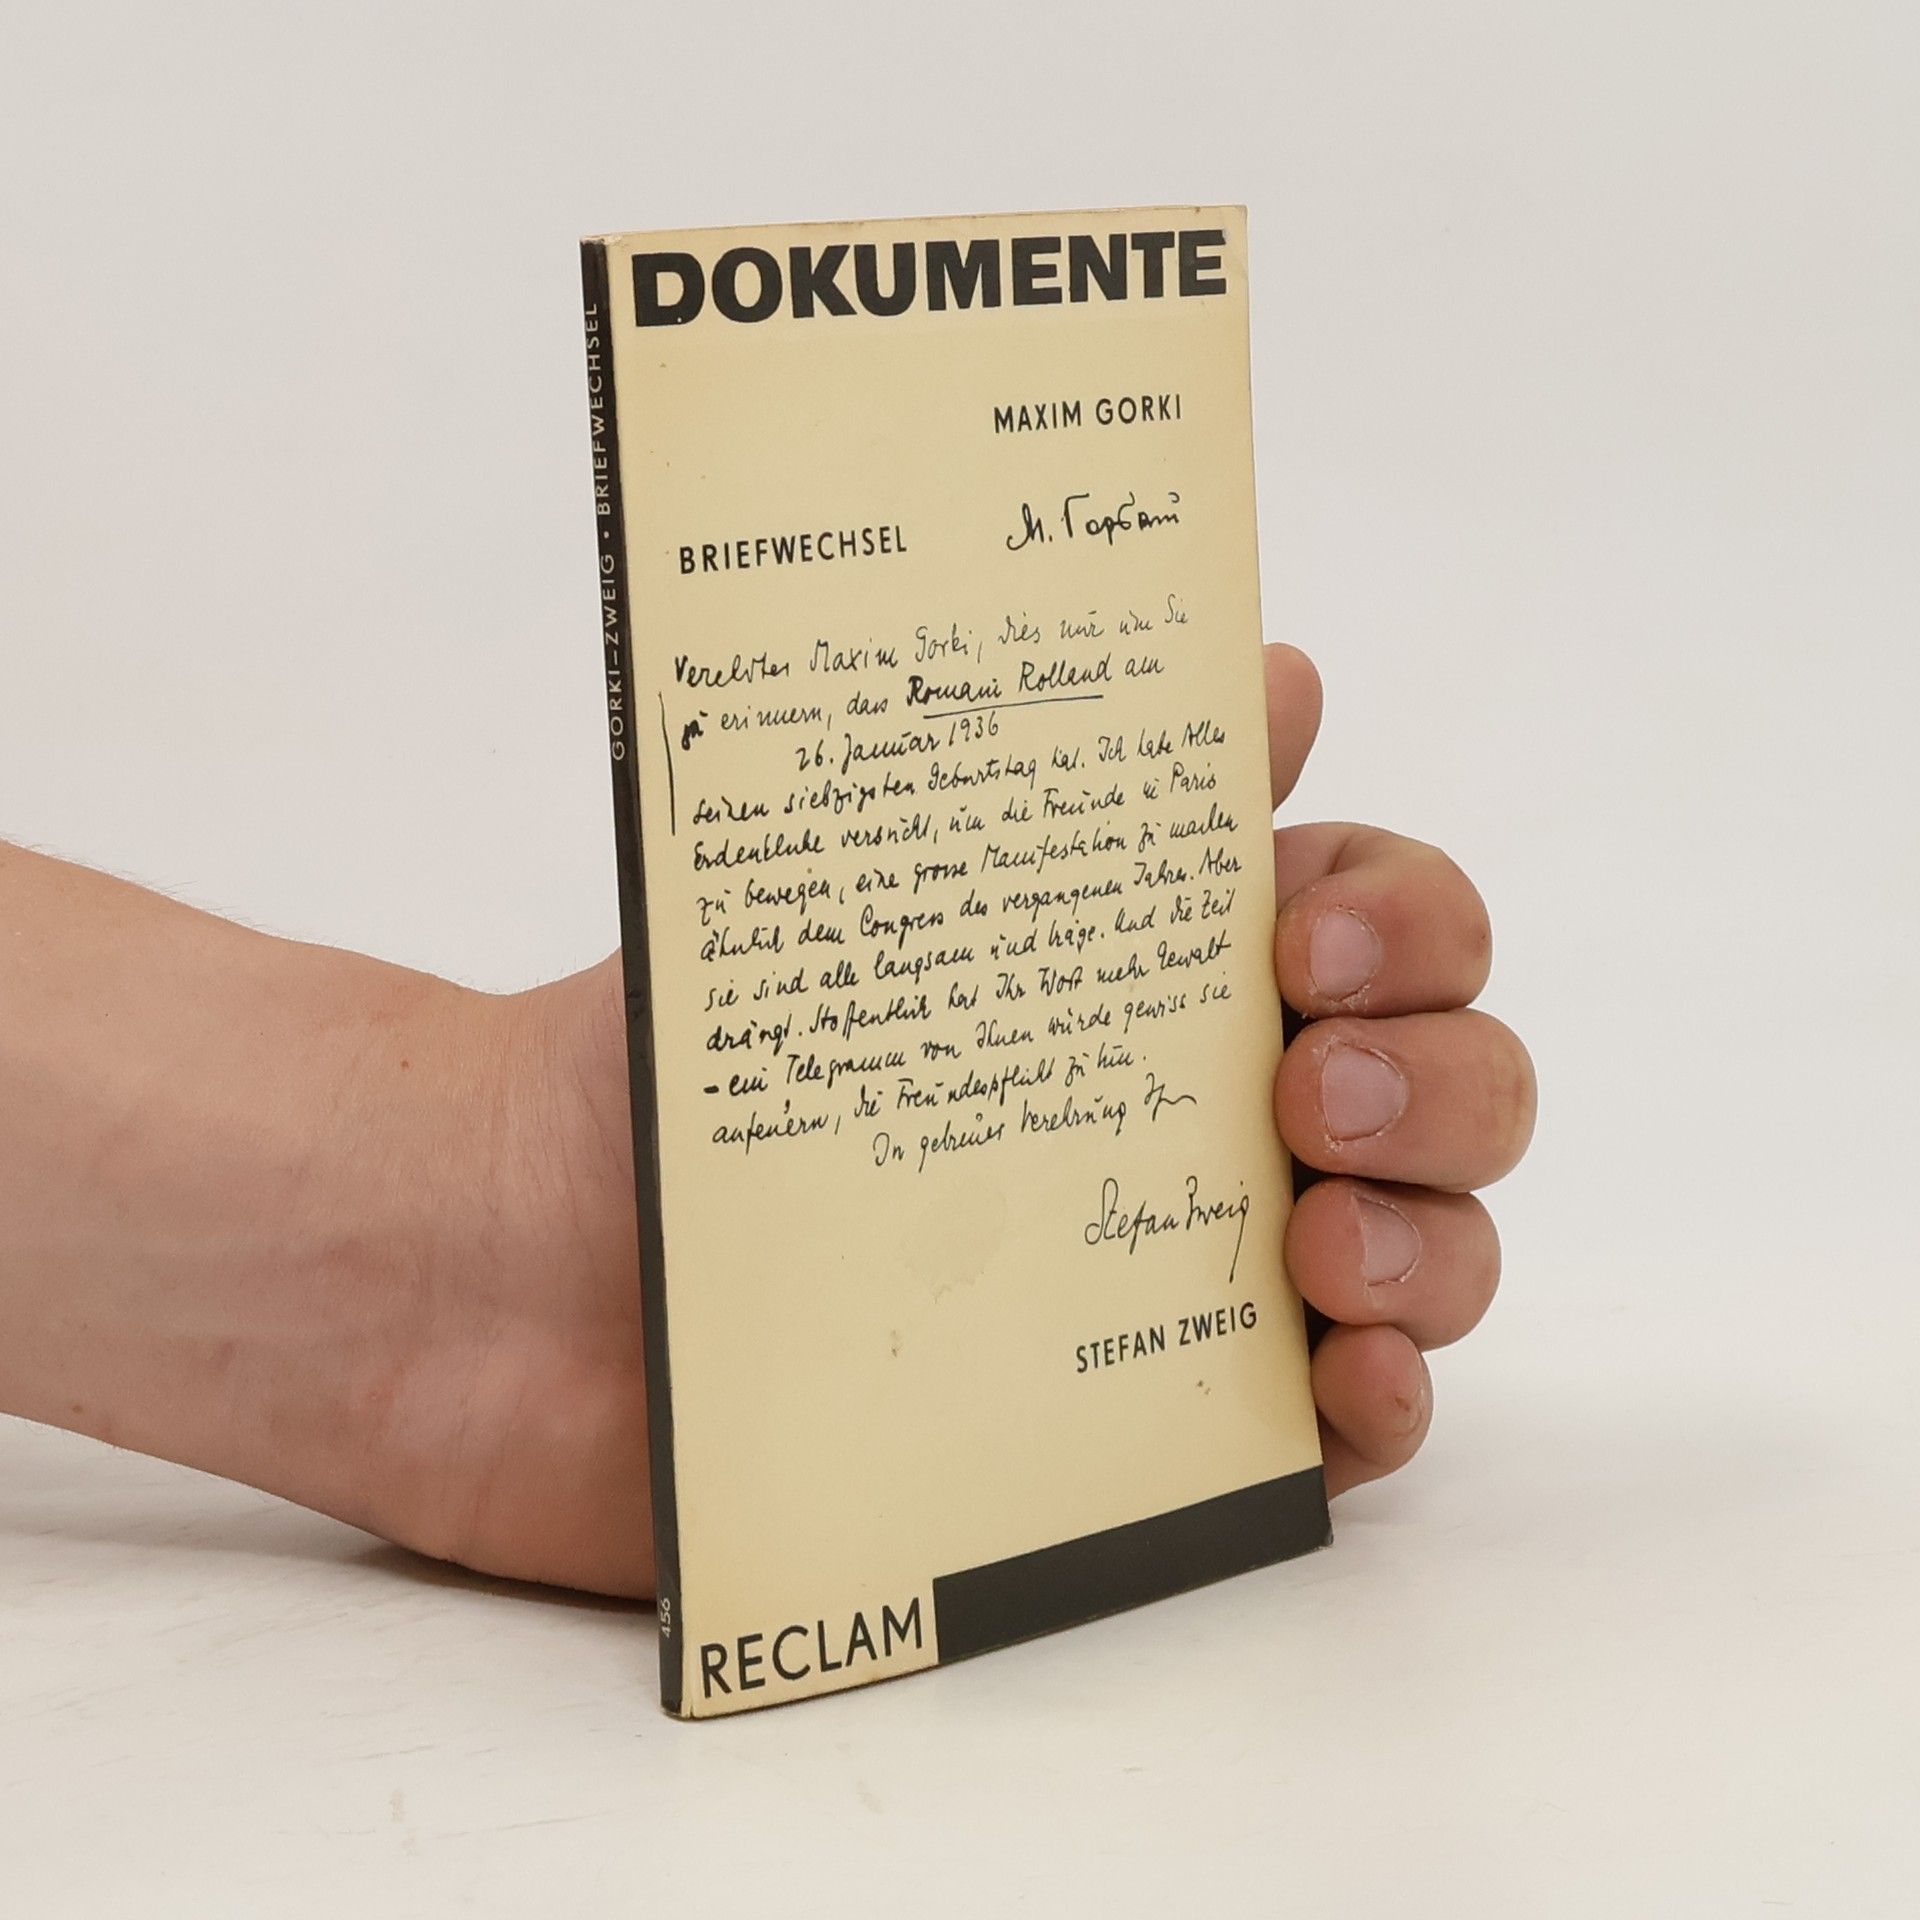 DOKUMENTE
MAXIM GORKI
М. Горький
BRIEFWECHSEL
Verehrter Maxim Gorki, dies nur um Sie
zu erinnern, dass Romain Rolland am
26. Januar 1936
seinen siebzigsten Geburtstag hat. Ich habe Alles
Erdenkliche versucht, um die Freunde in Paris
zu bewegen, eine grosse Manifestation zu machen
ähnlich dem Congress des vergangenen Jahres. Aber
sie sind alle langsam und träge. Und die Zeit
drängt. Hoffentlich hat Ihr Wort mehr Gewalt
– ein Telegramm von Ihnen würde gewiss sie
anfeuern, die Freundespflicht zu tun.
In getreuer Verehrung Ihr
Stefan Zweig
STEFAN ZWEIG
RECLAM
GORKI–ZWEIG · BRIEFWECHSEL
456